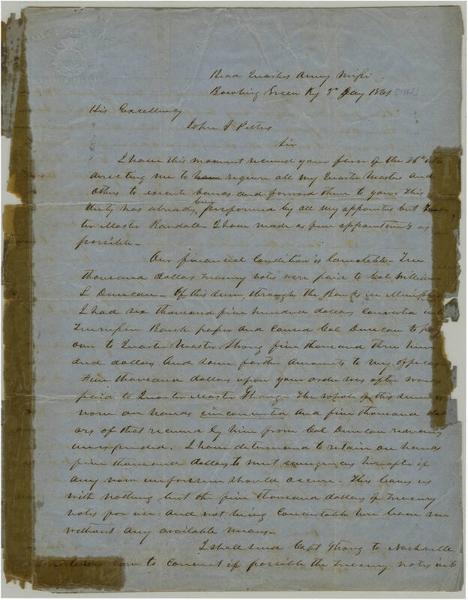 Head Quarters Army Missi
Bowling Green Ky 3d Jany 1861
His Excellency
John J Pettus
Sir
I have this moment received your favor of the 26th
directing me to have require all my Quarter Masters and
others to execute bonds and forward them to you. This
duty has already been performed by all my appointees but
Master Randale I have made as few appointments as
possible
Our financial Condition is lamentable. Ten
thousand dollars Treasury notes were paid to Col William
L Duncan. Of this sum through the Banks in Memphis
I had six thousand five hundred dollars converted into
Bank paper and caused Col Duncan to pay
over to Quarter Master Strong five thousand three hun
dred dollars and some further amounts to my officers
Five thousand dollars upon your order was afterwards
paid to Quarter Master Strong. The whole of this sum is
now on hands and five thousand
ars of that received by him from Col Duncan remains
unexpended. I have determined to retain on hands
five thousand dollars to meet emergencies
any should occur. This leaves us
with nothing but the five thousand dollars of Treasury
notes for use and not being Convertible we have
without any available means.
I shall send Capt Strong to Nashville
to convert if possible the Treasury notes into